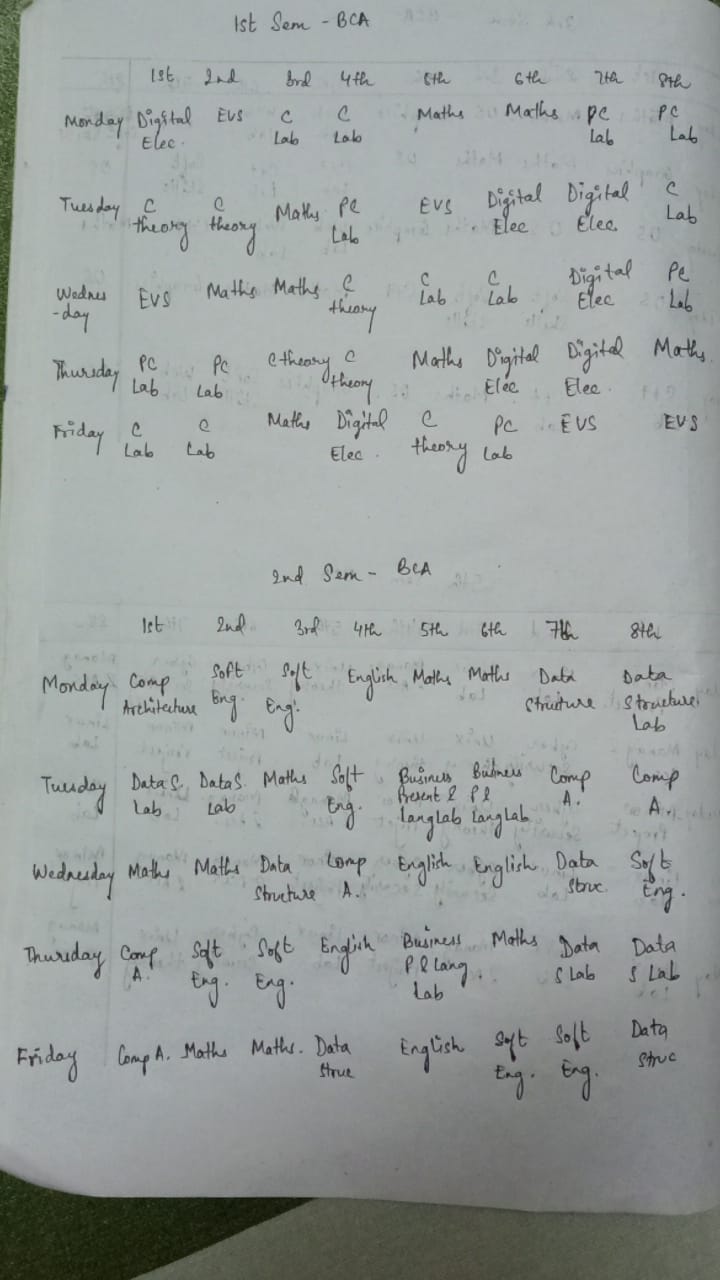 1st Sem - BCA
1st 2nd 3rd 4th 5th 6th 7th 8th
Monday Digital Elec. EVS C Lab C Lab Maths Maths PC Lab PC Lab
Tuesday C theory C theory Maths PC Lab EVS Digital Elec Digital Elec. C Lab
Wednes-day EVS Maths Maths C theory C Lab C Lab Digital Elec PC Lab
Thursday PC Lab PC Lab C theory C theory Maths Digital Elec Digital Elec. Maths
Friday C Lab C Lab Maths Digital Elec. C theory PC Lab EVS EVS
2nd Sem - BCA
1st 2nd 3rd 4th 5th 6th 7th 8th
Monday Comp Architecture Soft Eng. Soft Eng. English Maths Maths Data Structure Data Structure Lab
Tuesday Data S. Lab Data S. Lab Maths Soft Eng. Business Present & Lang Lab Business P & Lang Lab Comp A. Comp A.
Wednesday Maths Maths Data Structure Comp A. English English Data Struc Soft Eng.
Thursday Comp A. Soft Eng. Soft Eng. English Business P & Lang. Lab Maths Data S Lab Data S Lab
Friday Comp A. Maths Maths. Data Struc English Soft Eng. Soft Eng. Data Struc